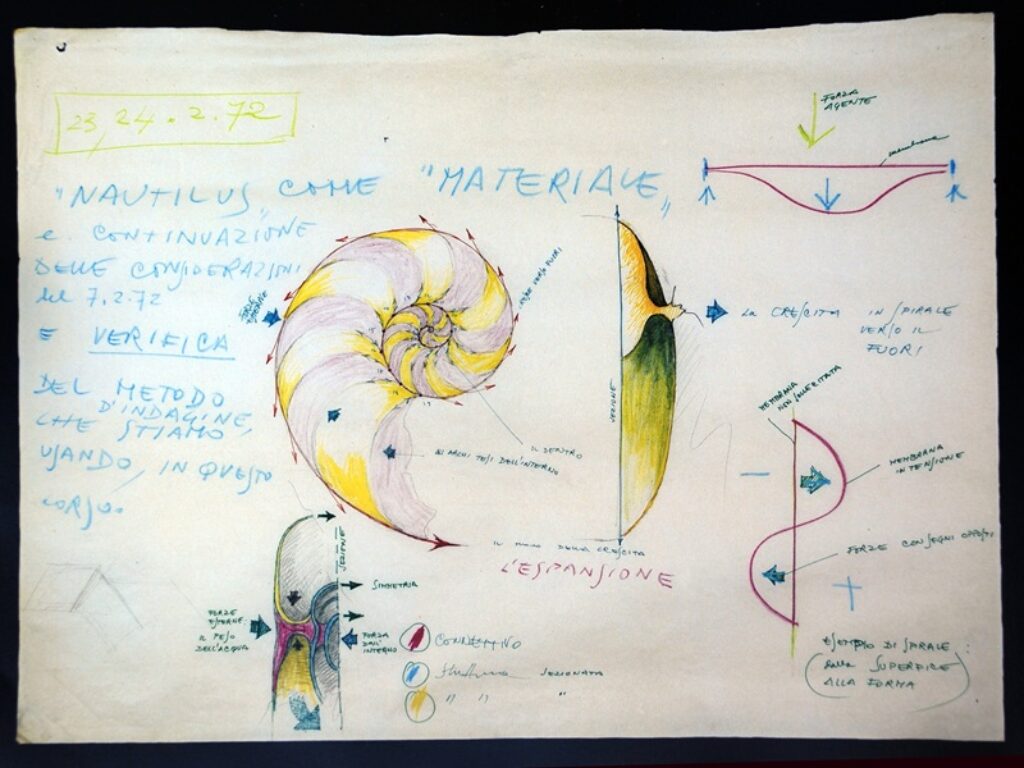 23, 24 • 2. 72
"NAUTILUS" COME "MATERIALE"
e CONTINUAZIONE
DELLE CONSIDERAZIONI
del 7.2.72
E VERIFICA
DEL METODO
D'INDAGINE,
CHE STIAMO
USANDO, IN QUESTO
CORSO.
FORZA
AGENTE
membrana
FORZE
ESTERNE
FORZE VERSO FUORI
VERSIONE
LA CRESCITA IN SPIRALE
VERSO IL
FUORI
IL DENTRO
GLI ARCHI TESI DELL'INTERNO
MEMBRANA
NON SOLLECITATA
MEMBRANA
IN TENSIONE
–
FORZE CON SEGNI OPPOSTI
+
DELLA CRESCITA
L'ESPANSIONE
SEZIONE
SIMMETRIA
FORZE
ESTERNE:
IL PESO
DELL'ACQUA
FORZA
DALL'
INTERNO
CONNETTIVO
SEZIONATA
" " "
ESEMPIO DI SPIRALE:
(dalla SUPERFICE
ALLA FORMA)